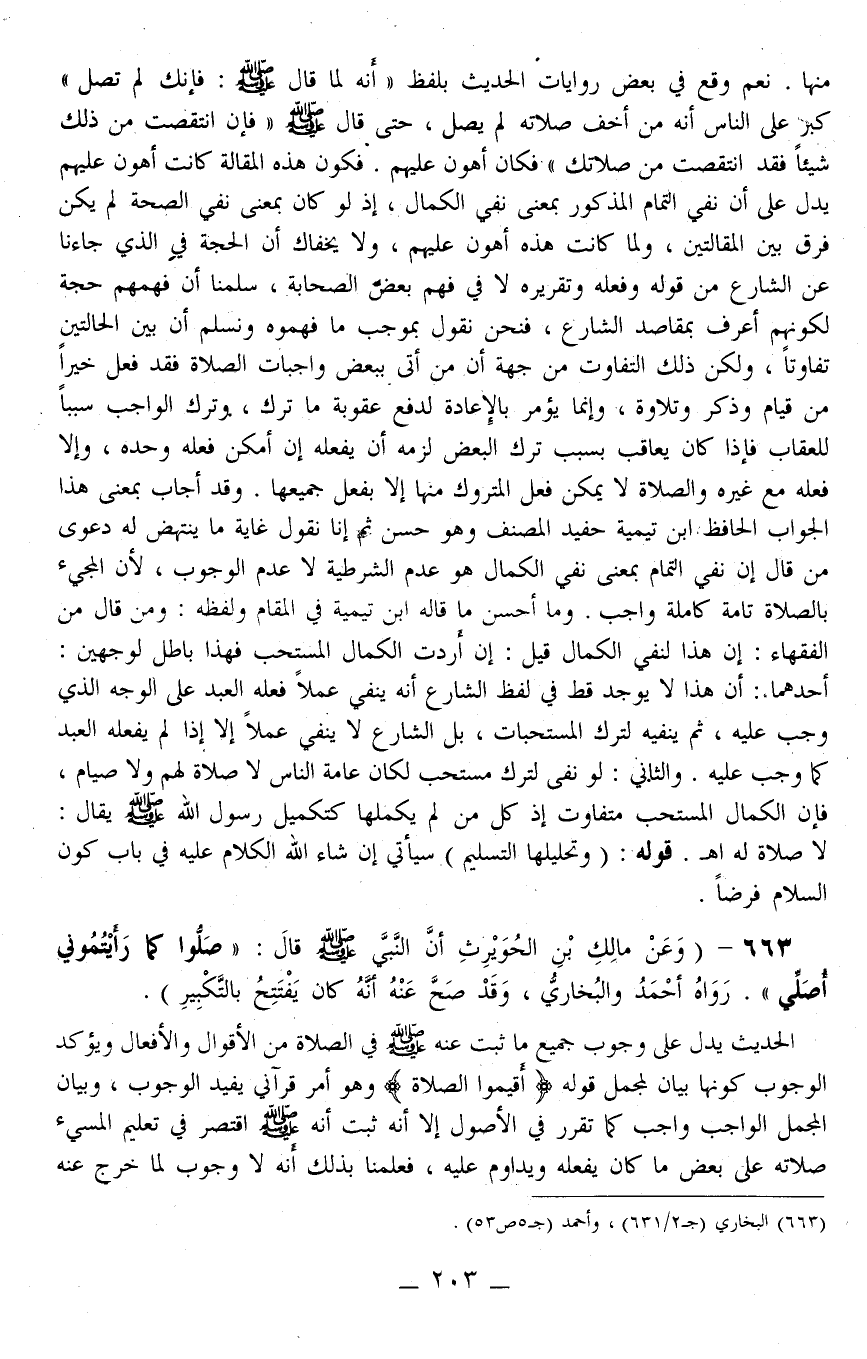 منها . نعم وقع في بعض روايات الحديث بلفظ « أَنه لما قال ﷺ : فإنك لم تصل »
كبر على الناس أنه من أخف صلاته لم يصل ، حتى قال ﷺ « فإن انتقصت من ذلك
شيئاً فقد انتقصت من صلاتك » فكان أهون عليهم . فكون هذه المقالة كانت أهون عليهم
يدل على أن نفي التمام المذكور بمعنى نفي الكمال ، إذ لو كان بمعنى نفي الصحة لم يكن
فرق بين المقالتين ، ولما كانت هذه أهون عليهم ، ولا يخفاك أن الحجة في الذي جاءنا
عن الشارع من قوله وفعله وتقريره لا في فهم بعض الصحابة ، سلمنا أن فهمهم حجة
لكونهم أعرف بمقاصد الشارع ، فنحن نقول بموجب ما فهموه ونسلم أن بين الحالتين
تفاوتاً ، ولكن ذلك التفاوت من جهة أن من أتى ببعض واجبات الصلاة فقد فعل خيراً
من قيام وذكر وتلاوة ، وإنما يؤمر بالإعادة لدفع عقوبة ما ترك ، وترك الواجب سبباً
للعقاب فإذا كان يعاقب بسبب ترك البعض لزمه أن يفعله إن أمكن فعله وحده ، وإلا
فعله مع غيره والصلاة لا يمكن فعل المتروك منها إلا بفعل جميعها . وقد أجاب بمعنى هذا
الجواب الحافظ ابن تيمية حفيد المصنف وهو حسن ثم إنا نقول غاية ما ينتهض له دعوى
من قال إن نفي التمام بمعنى نفي الكمال هو عدم الشرطية لا عدم الوجوب ، لأن المجيء
بالصلاة تامة كاملة واجب . وما أحسن ما قاله ابن تيمية في المقام ولفظه : ومن قال من
الفقهاء : إن هذا لنفي الكمال قيل : إن أَردت الكمال المستحب فهذا باطل لوجهين :
أحدهما : أن هذا لا يوجد قط في لفظ الشارع أنه ينفي عملاً فعله العبد على الوجه الذي
وجب عليه ، ثم ينفيه لترك المستحبات ، بل الشارع لا ينفي عملاً إلا إذا لم يفعله العبد
كما وجب عليه . والثاني : لو نفى لترك مستحب لكان عامة الناس لا صلاة لهم ولا صيام ،
فإن الكمال المستحب متفاوت إذ كل من لم يكملها كتكميل رسول الله ﷺ يقال :
لا صلاة له اهـ . قوله : ( وتحليلها التسليم ) سيأتي إن شاء الله الكلام عليه في باب كون
السلام فرضاً .
٦٦٣ - ( وَعَنْ مالِكِ بْنِ الحُوَيْرِثِ أنَّ النَّبيَّ ﷺ قالَ : « صَلُّوا كما رَأَيْتُمُوني
أُصَلِّي » . رَوَاهُ أحْمَدُ والبُخاريُّ ، وَقَدْ صَحَّ عَنْهُ أنَّهُ كان يَفْتَتِحُ بالتَّكْبِيرِ ) .
الحديث يدل على وجوب جميع ما ثبت عنه ﷺ في الصلاة من الأقوال والأفعال ويؤكد
الوجوب كونها بيان لمجمل قوله ﴿ أَقيموا الصلاة ﴾ وهو أمر قرآني يفيد الوجوب ، وبيان
المجمل الواجب واجب كما تقرر في الأصول إلا أنه ثبت أنه ﷺ اقتصر في تعليم المسيء
صلاته على بعض ما كان يفعله ويداوم عليه ، فعلمنا بذلك أَنه لا وجوب لما خرج عنه
(٦٦٣) البخاري (جـ٦٣١/٢) ، وأحمد (جـ٥ص٥٣) .
— ٢٠٣ —